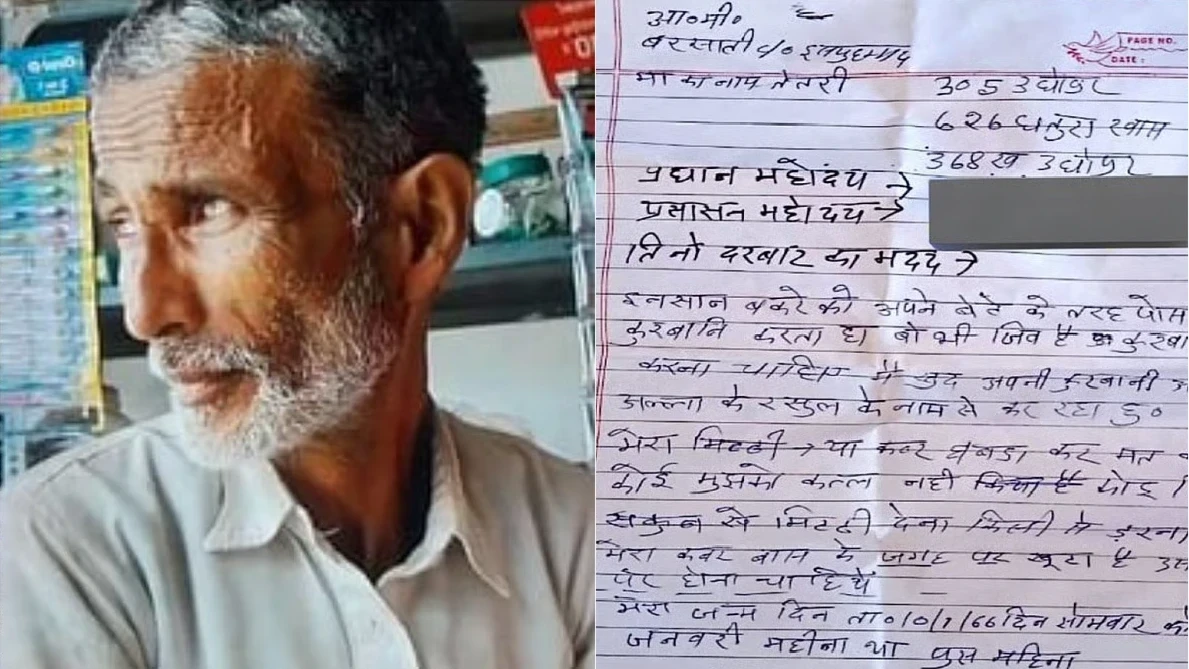 आ०मी०
बरसाती
PAGE NO.
DATE :
मा का नाम तेतरी
305 उधोपुर
626 धतुरा खाम
368 ख उधोपुर
प्रधान महोदय →
प्रसासन महोदय →
तिनो दरबार का मदद →
इनसान बकरे को अपने बेटे के तरह पोस
कुरबानि करता है। वो भी जिव है
करना चाहिए मै खुद अपनी कुरबानी
अल्ला के रसुल के नाम से कर रहा हु०
मेरा मिटटी → या कबर घबडा कर मत
कोई मुझको कत्ल नही किया है
सकुन से मिटटी देना किसी से डरना
मेरा कबर बास के जगह पर खूटा है
पर होना चाहिये
मेरा जन्म दिन ता० 10/1/66 दिन सोमवार को
जनवरी महीना या पुस महिना